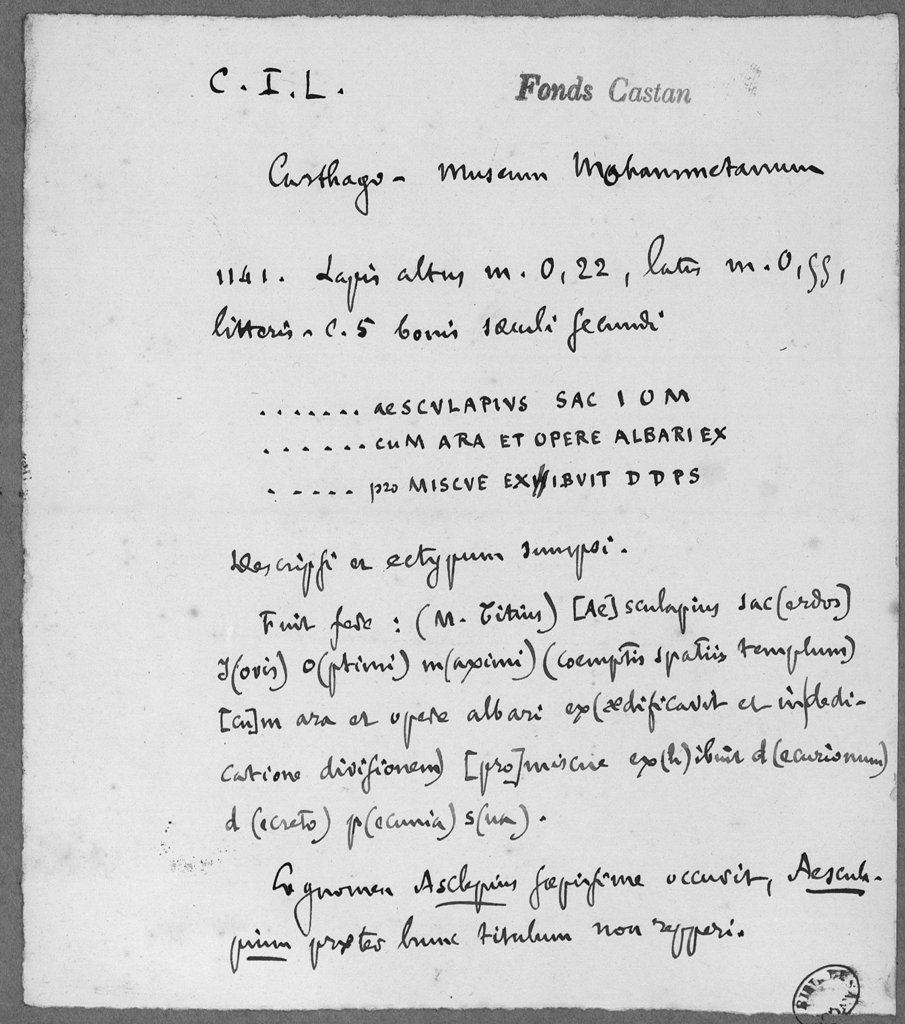 C. I. L.
Fonds Castan
Carthago - Museum Mohammetanum
1141. Lapis altus m. 0,22, latus m. 0,55,
litteris - c. 5 bonis sæculi secundi
....... aeSCVLAPIVS SAC I O M
...... cuM ARA ET OPERE ALBARI EX
..... pro MISCVE EXIBVIT D D P S
Descripsi et ectypum sumpsi.
Fuit fere : (M. Titius) [Ae]sculapius sac(erdos)
J(ovis) O(ptimi) m(aximi) (coemptis spatiis templum)
[cu]m ara et opere albari ex(ædificavit et in dedi-
catione divisionem) [pro]miscue ex(h)ibuit d(ecurionum)
d(ecreto) p(ecunia) s(ua).
Cognomen Asclepius sæpissime occurit, Aescula-
pium præter hunc titulum non repperi.